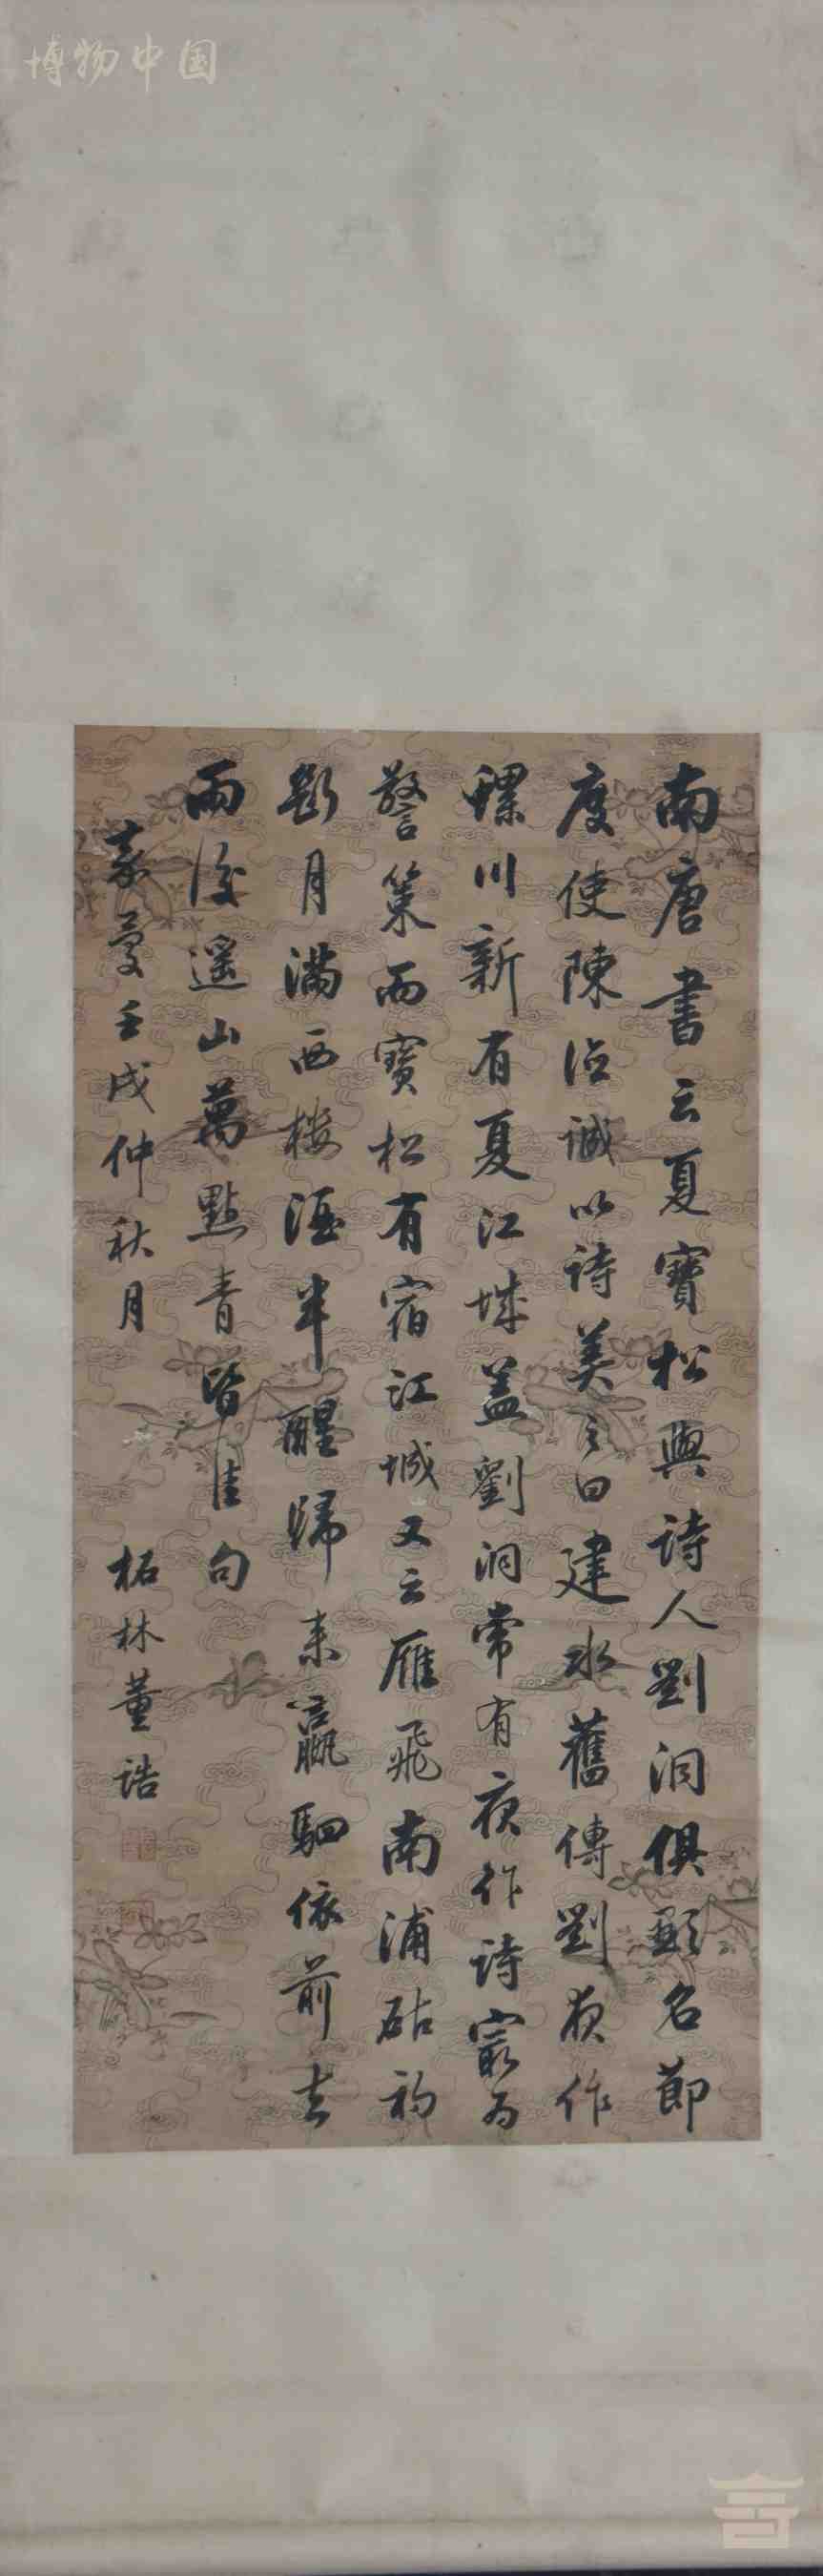 博物中国
南唐書云夏寶松與詩人劉洞俱顯名節
度使陳德誠以詩美之曰建水舊傳劉夜作
螺川新有夏江城蓋劉洞常有夜作詩最为
警策而寶松有宿江城又云雁飛南浦砧初
斷月滿西樓酒半醒歸来羸駟依前去
雨後遥山萬點青皆佳句
壬戌仲秋月
柘林董誥